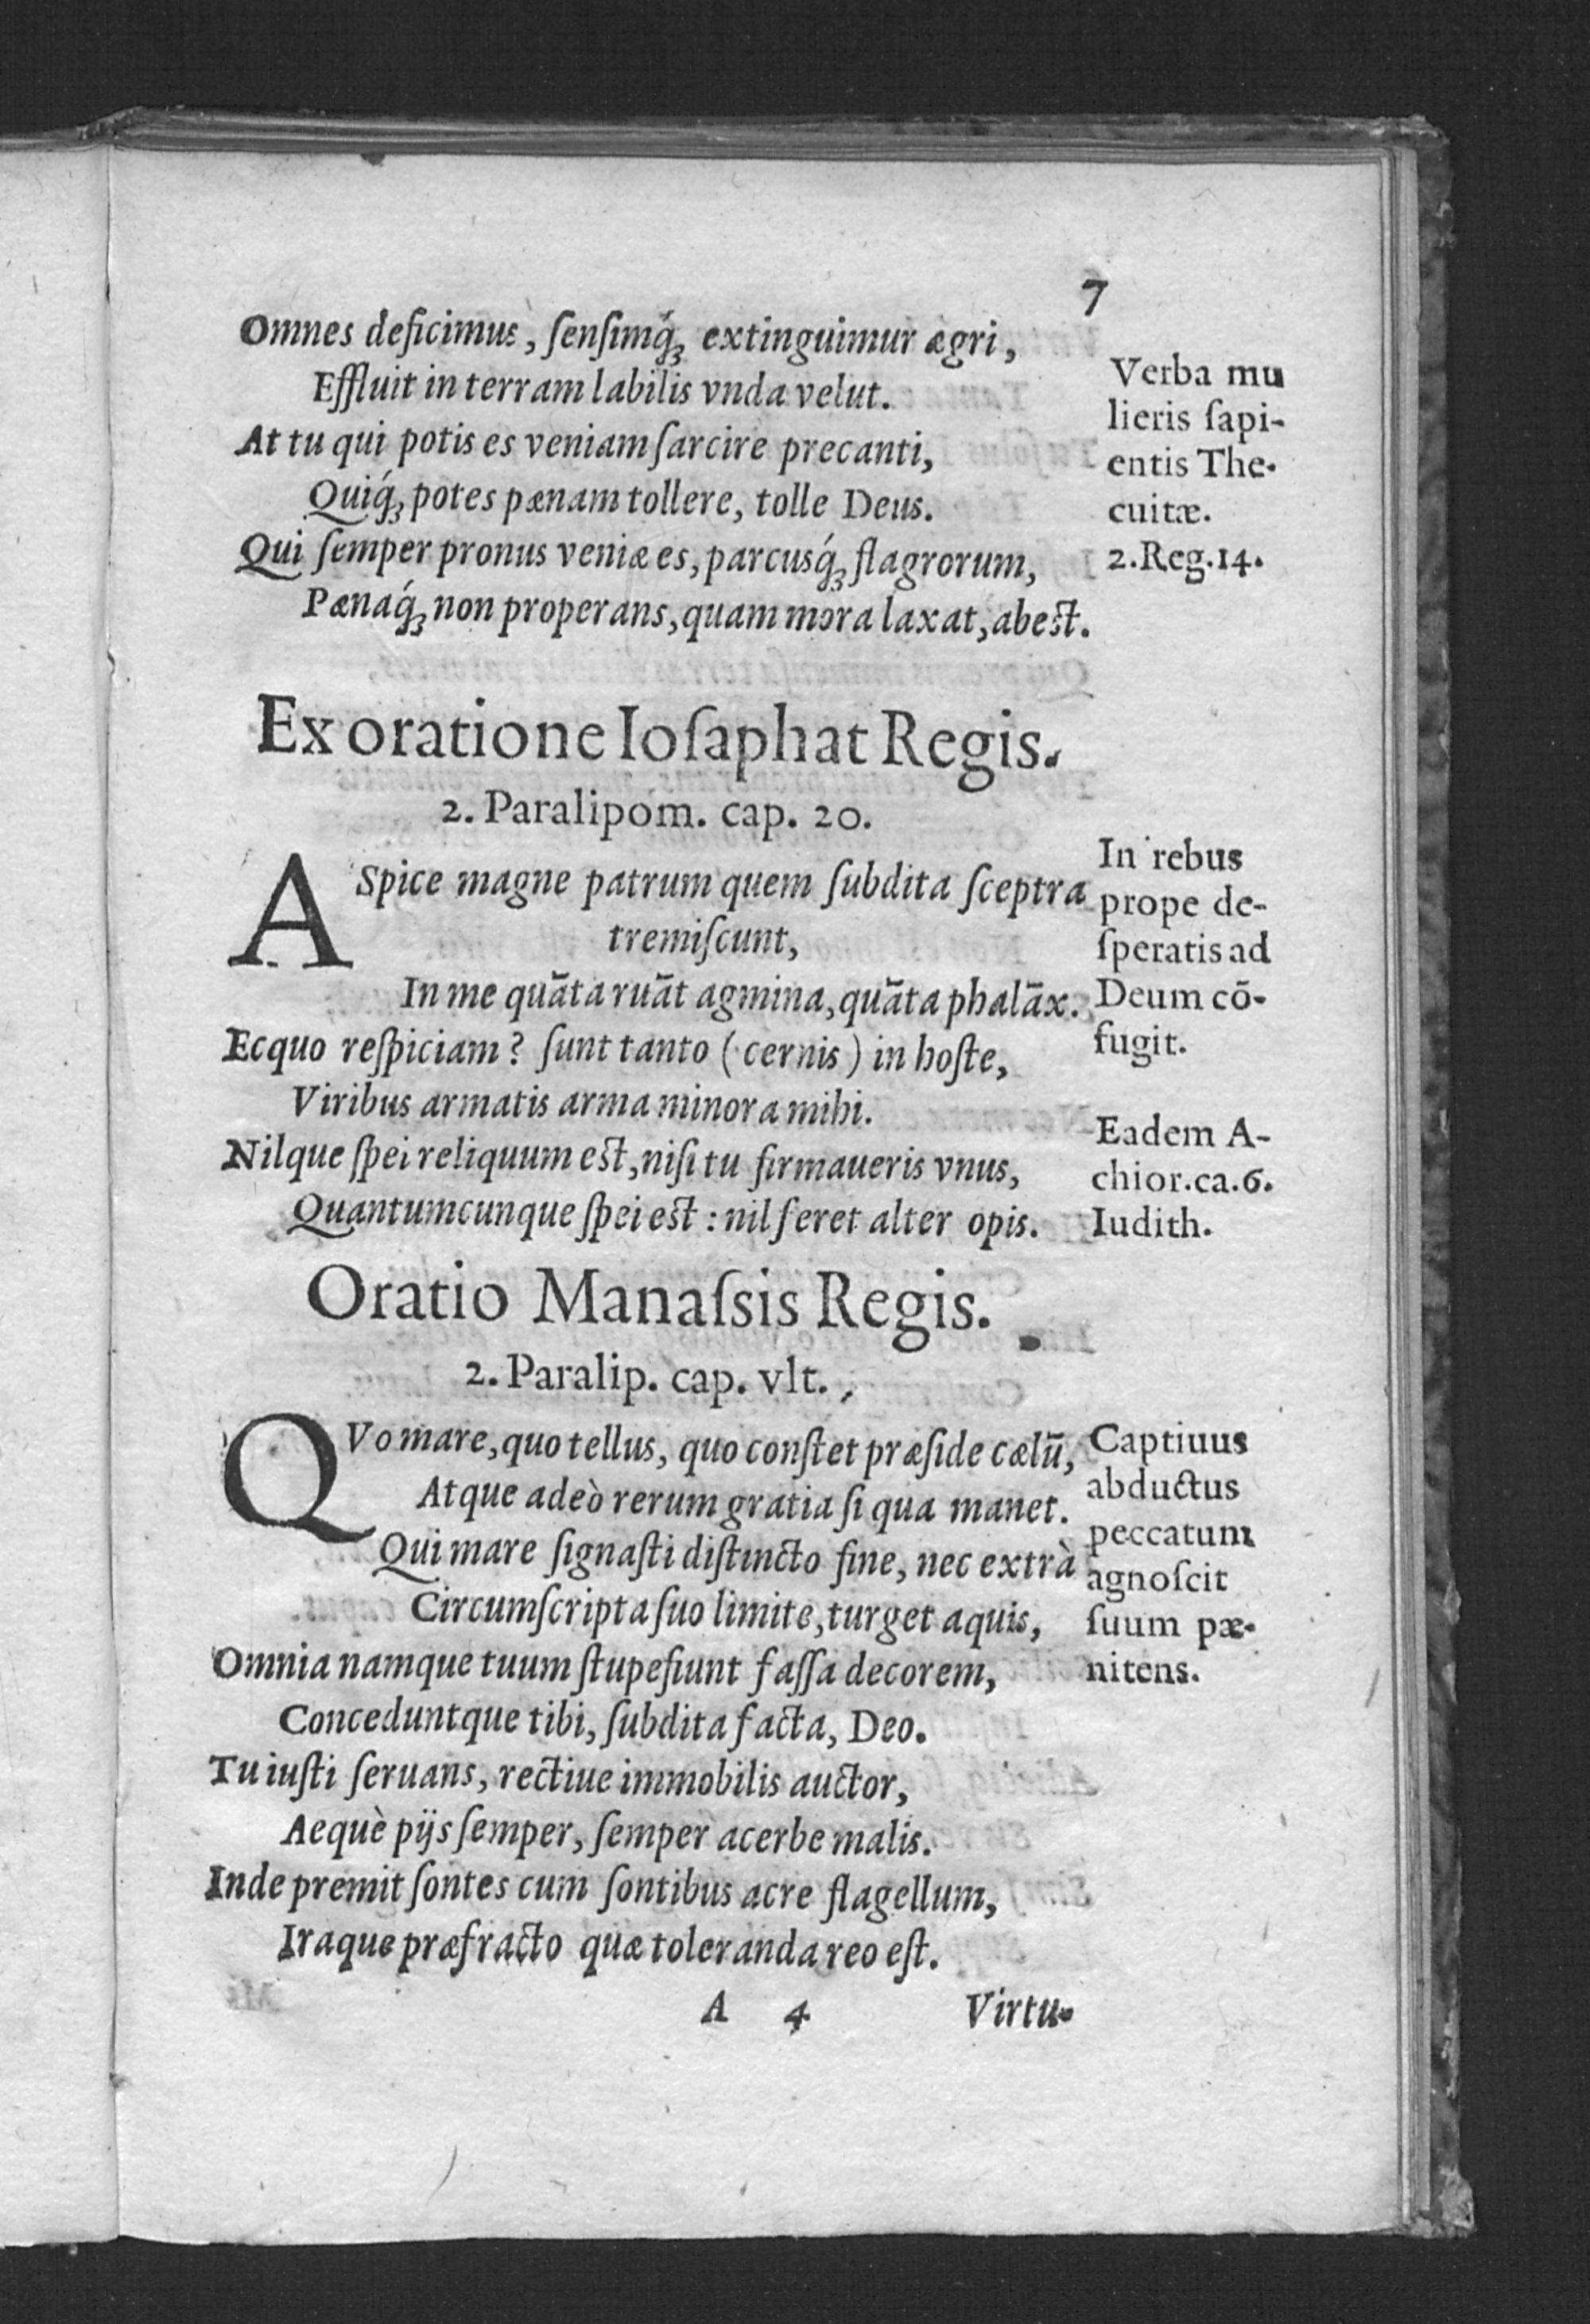 7
Omnes deficimus, ſenſimq́ꝫ extinguimur ægri,
Effluit in terram labilis vnda velut.
At tu qui potis es veniam ſarcire precanti,
Quiq́ꝫ potes pænam tollere, tolle Deus.
Qui ſemper pronus veniæ es, parcusq́ꝫ flagrorum,
Pænaq́ꝫ non properans, quam mora laxat, abest.
Verba mu
lieris ſapi-
entis The-
cuitæ.
2. Reg. 14.
Ex oratione Ioſaphat Regis.
2. Paralipom. cap. 20.
ASpice magne patrum quem ſubdita ſceptra
tremiſcunt,
In me quāta ruāt agmina, quāta phalāx.
Ecquo reſpiciam? ſunt tanto (cernis) in hoſte,
Viribus armatis arma minora mihi.
Nilque ſpei reliquum est, niſi tu firmaueris vnus,
Quantumcunque ſpei est: nil feret alter opis.
In rebus
prope de-
ſperatis ad
Deum cō-
fugit.
Eadem A-
chior. ca. 6.
Iudith.
Oratio Manaſsis Regis.
2. Paralip. cap. vlt.
QVo mare, quo tellus, quo conſtet præſide cælū,
Atque adeò rerum gratia ſi qua manet.
Qui mare ſignaſti diſtincto fine, nec extrà
Circumſcripta ſuo limite, turget aquis,
Omnia namque tuum ſtupefiunt faſſa decorem,
Conceduntque tibi, ſubdita facta, Deo.
Tu iuſti ſeruans, rectiue immobilis auctor,
Aequè pijs ſemper, ſemper acerbe malis.
Inde premit ſontes cum ſontibus acre flagellum,
Iraque præfracto quæ toleranda reo eſt.
Captiuus
abductus
peccatum
agnoſcit
ſuum pæ-
nitens.
A 4 Virtu-